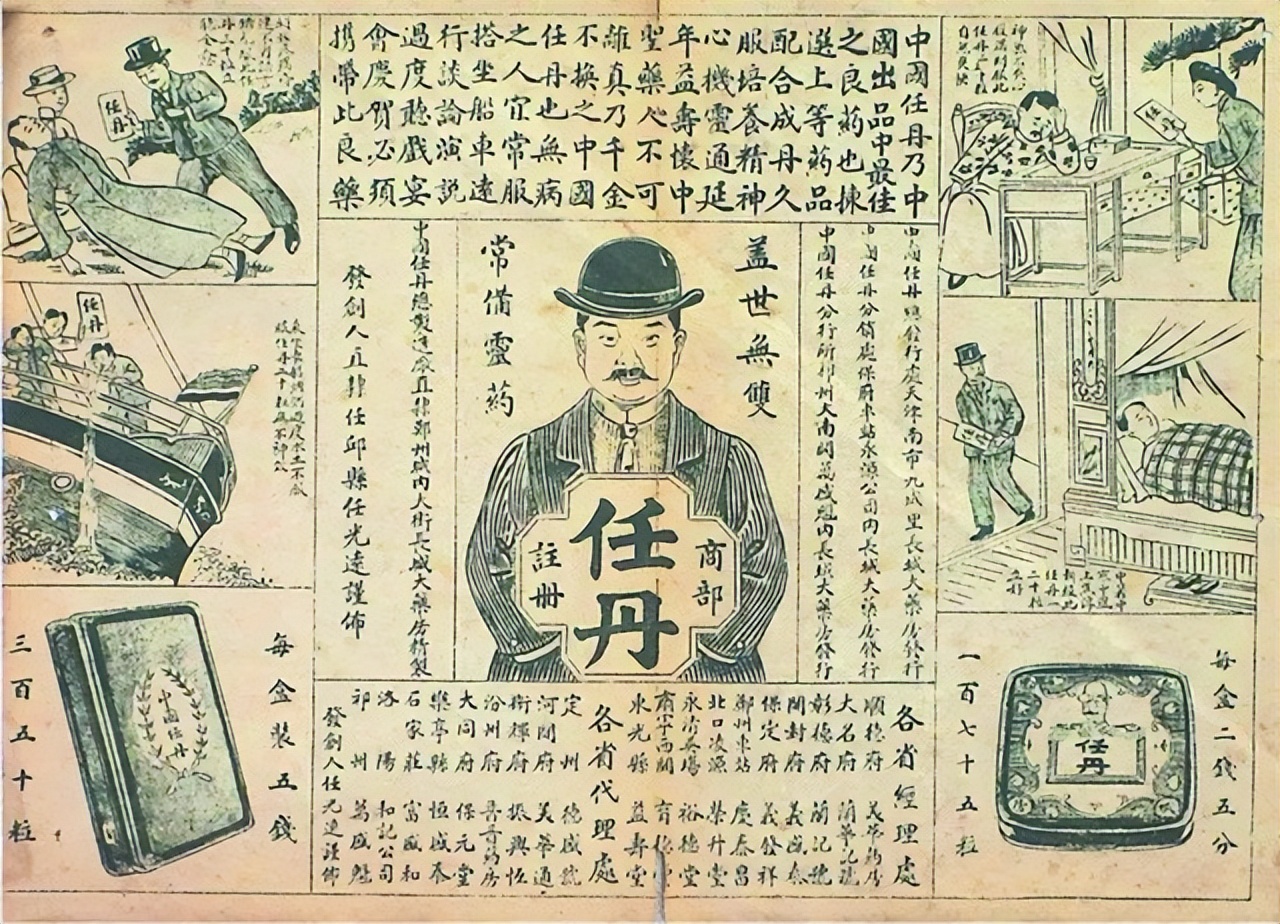 中國任丹乃中
國出品中最佳
之良药也揀
選上等药品
配合成丹久
服培養精神
心機靈通延
年益壽懷中
聖藥必不可
離真乃千金
不換之中國
任丹也無病
之人宜常服
搭坐船車遠
行談論演説
過度聽戲宴
會慶賀必須
携帶此良藥
任丹
任丹
任丹
中國任丹總發行處天津南市九成里長城大藥房發行
中國任丹分銷處保府車站永源公司內長城大藥房發行
中國任丹分行所祁州大南関萬盛魁內長城大藥房發行
蓋世無雙
常備靈药
商部
任丹
註冊
中國任丹總製造廠直隸鄭州城內大街長城大藥房精製
發創人直隸任邱縣任光遠謹佈
每盒二錢五分
任丹
一百七十五粒
各省經理處
順德府 義華药房
大名府 蘭華記號
彰德府 蘭記號
開封府 義盛泰
保定府 義發祥
鄭州車站 慶泰昌
北口凌源 榮升堂
永清 裕德堂
肅寧西關 育德堂
東光縣 益壽堂
各省代理處
定州 德盛號
河間府 美華通
衛輝府 振興恆
汾州府 普育药房
大同府 保元堂
樂亭縣 恒盛泰
石家莊 富盛和
洛陽 和記公司
祁州 萬盛魁
發創人任光遠謹佈
每盒裝五錢
中國任丹
三百五十粒